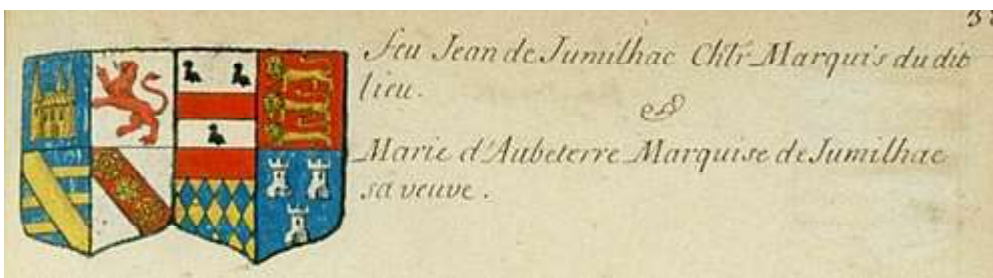 feu Jean de Jumilhac Chlr Marquis du dit
lieu.
&
Marie d'Aubeterre Marquise de Jumilhac
sa veuve.